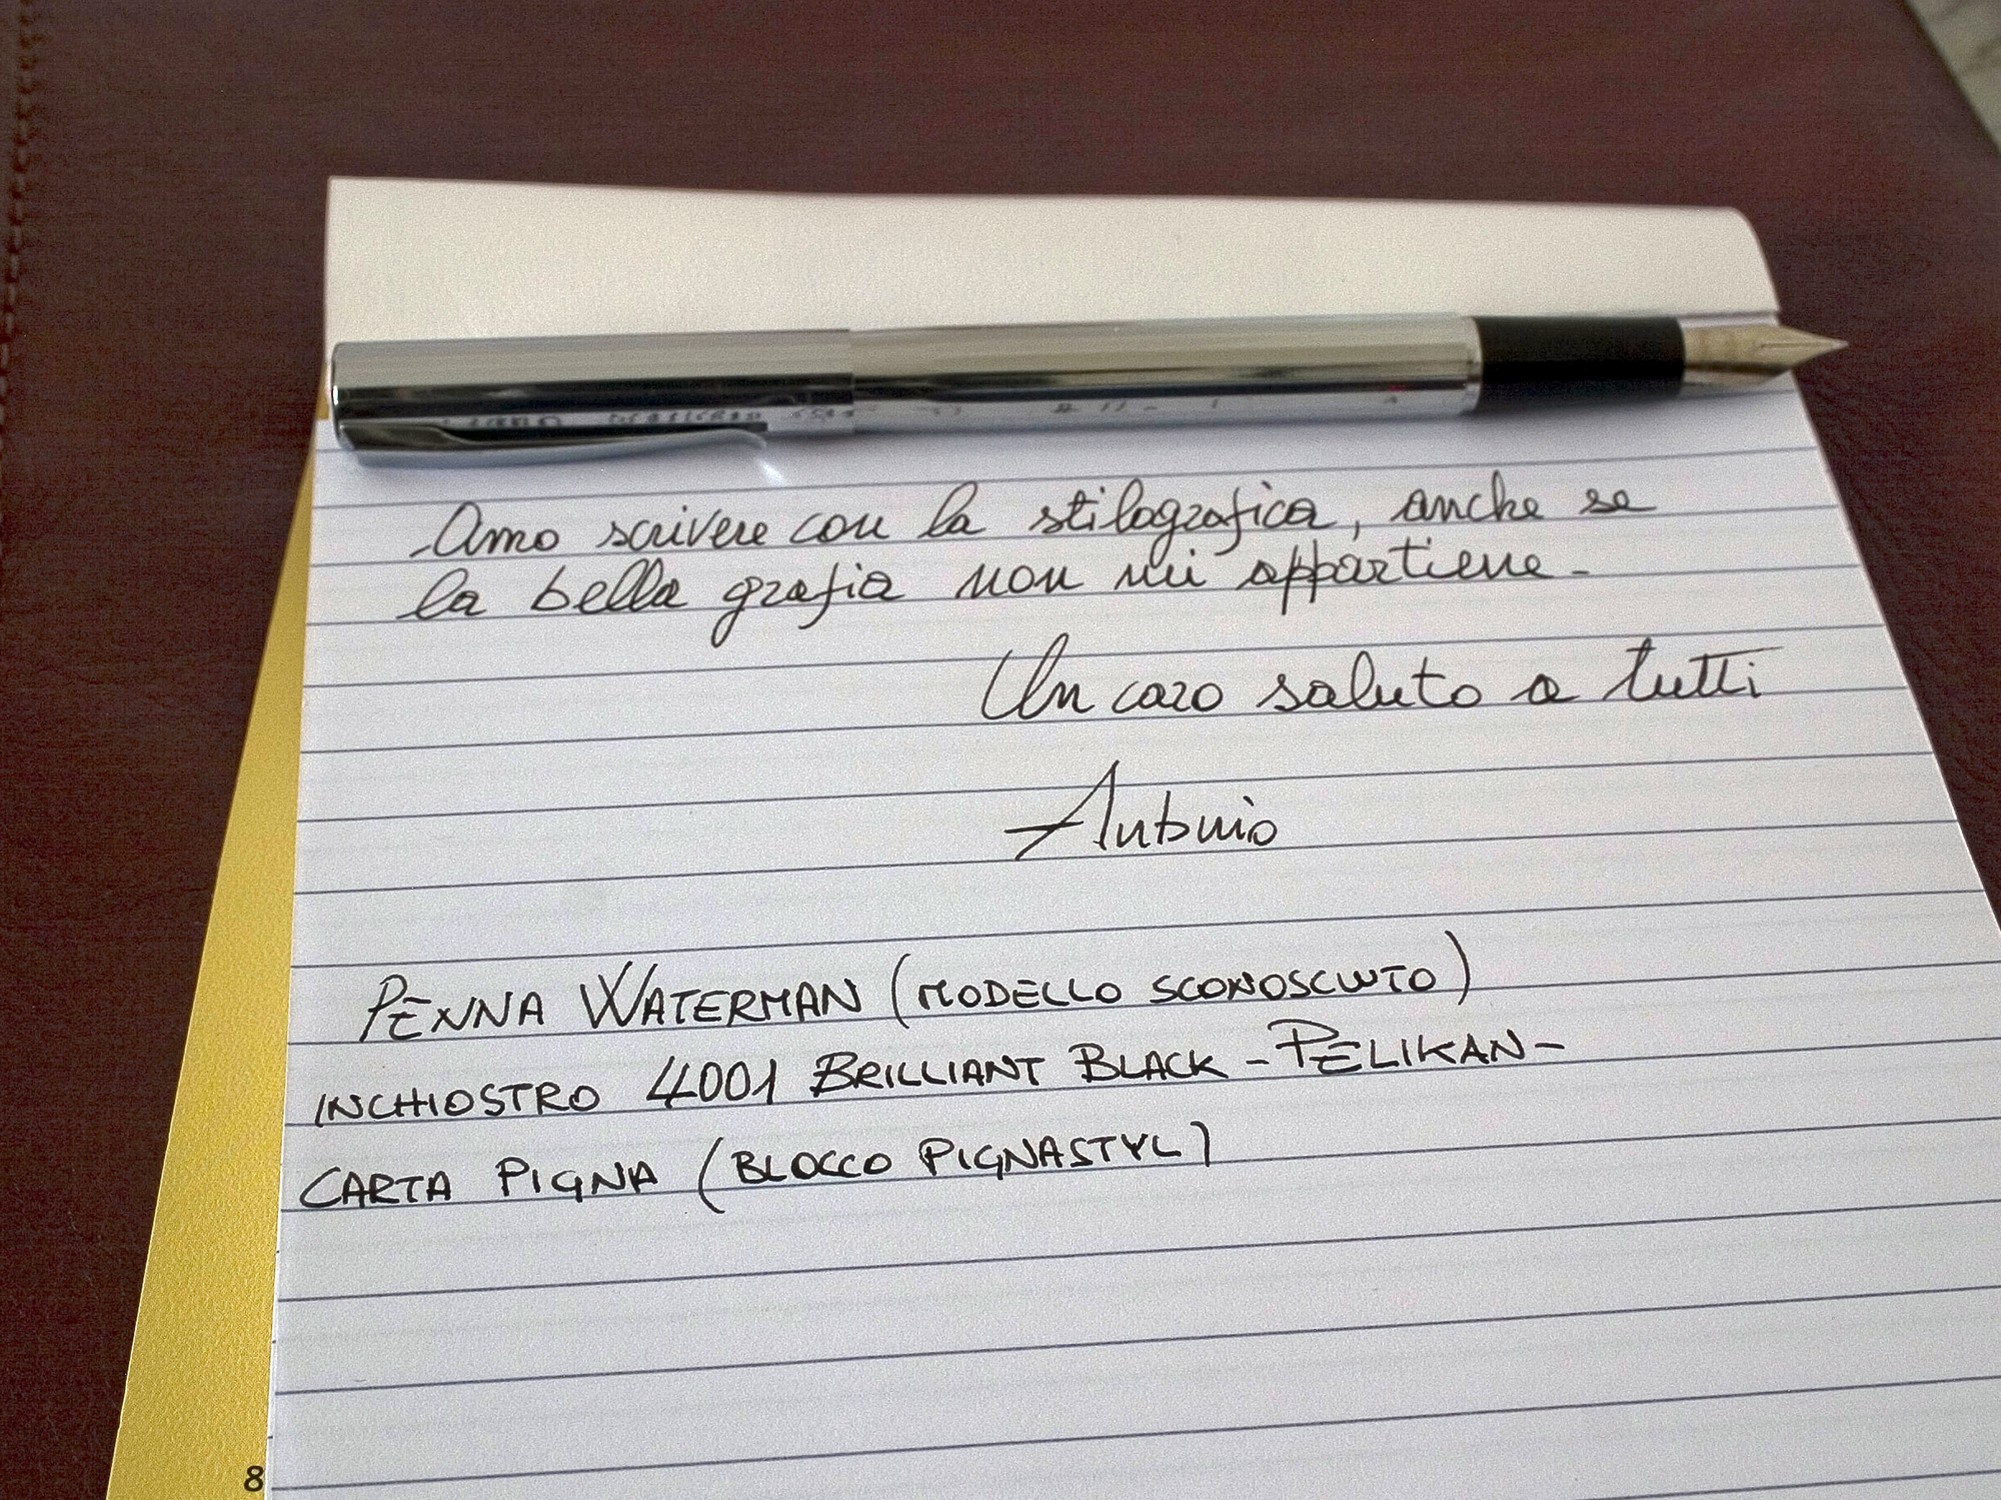 Amo scrivere con la stilografica, anche se
la bella grafia non mi appartiene.
Un caro saluto a tutti
Antonio
PENNA WATERMAN (MODELLO SCONOSCIUTO)
INCHIOSTRO 4001 BRILLIANT BLACK - PELIKAN -
CARTA PIGNA (BLOCCO PIGNASTYL)
8